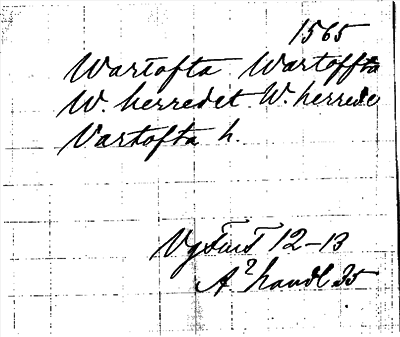 1565
Wartofta Wartoffta
W. herredet W. herrede
Vartofta h.
Vg 12-13
handl 35